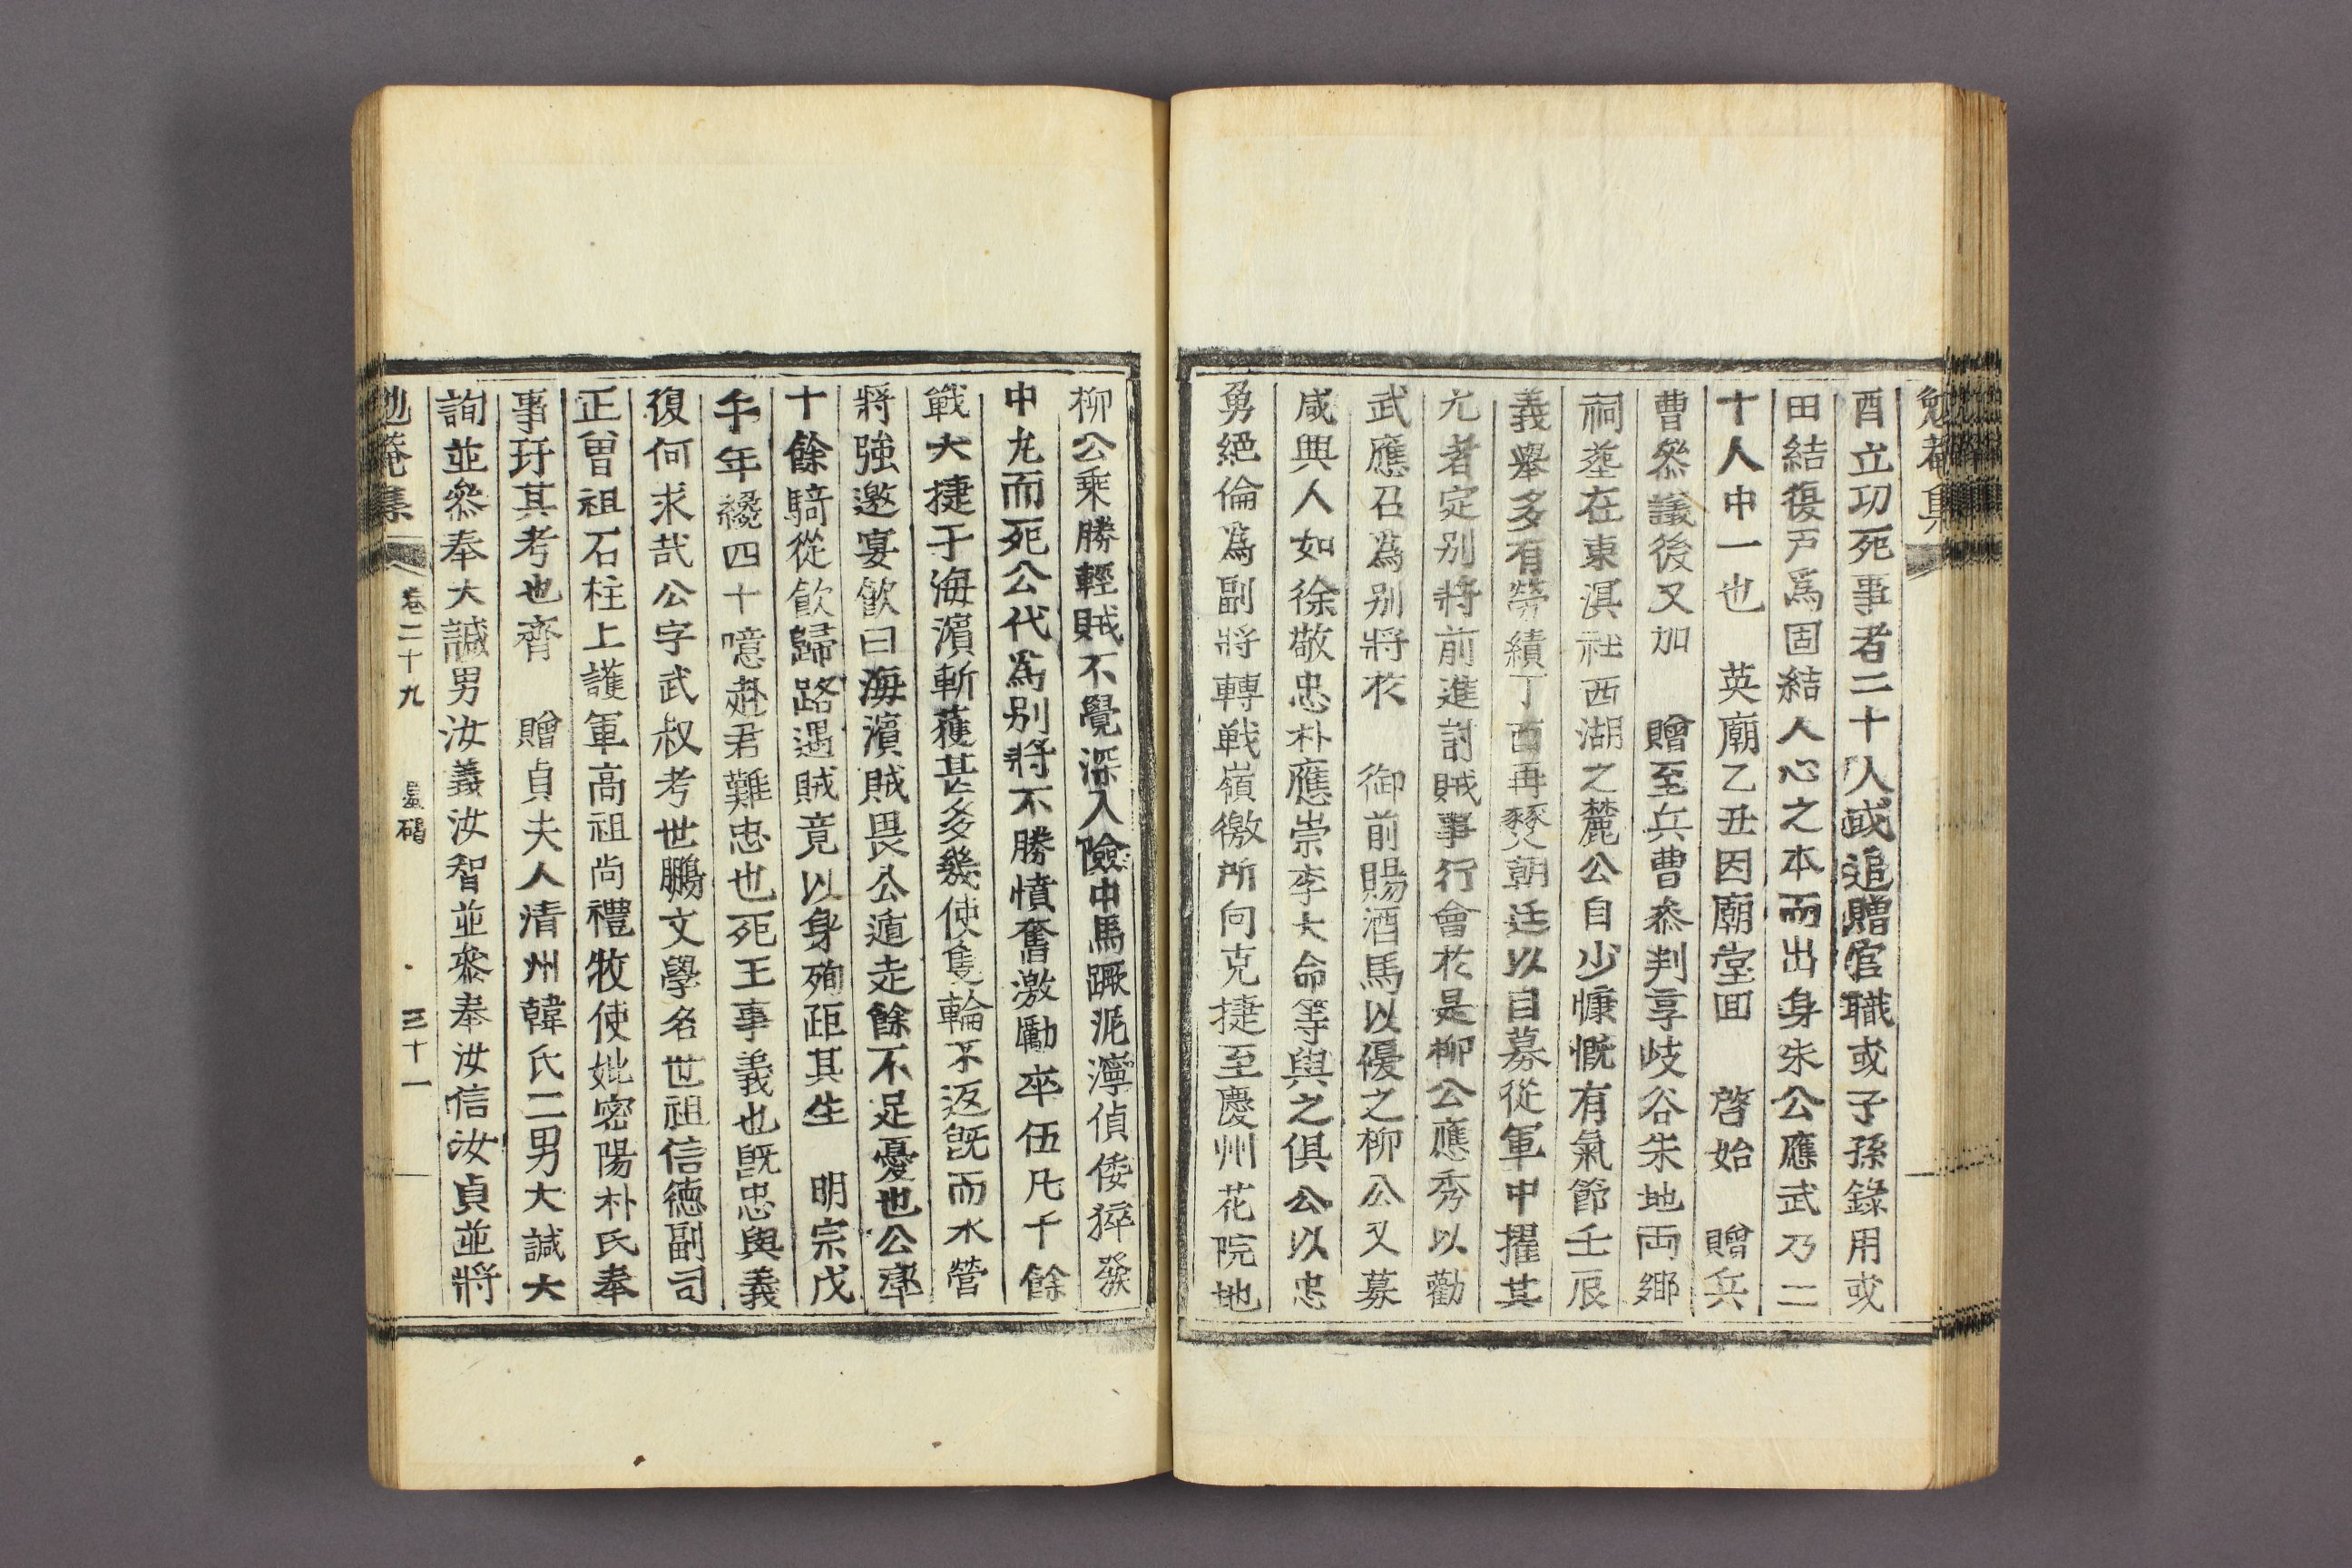 酉立功死事者二十人或追贈官職或子孫錄用或
田結復戶爲固結人心之本而出身朱公應武乃二
十人中一也 英廟乙丑因廟堂回 啓始 贈兵
曹叅議後又加 贈至兵曹叅判享岐谷朱地両鄕
祠墓在東溟社西湖之麓公自少慷慨有氣節壬辰
義舉多有勞績丁酉再燹朝廷以自募從軍中擢其
尤者定别將前進討賊事行會於是柳公應秀以勸
武應召爲别將於 御前賜酒馬以優之柳公又募
咸興人如徐敬忠朴應崇李大命等與之俱公以忠
勇絕倫爲副將轉戦嶺徼所向克捷至慶州花院地
柳公乘勝輕賊不覺深入險中馬蹶泥濘偵倭猝發
中丸而死公代爲别將不勝憤奮激勵卒伍凡千餘
戰大捷于海濱斬獲甚多幾使隻輪不返旣而水營
將強邀宴飮曰海濱賊畏公遁走餘不足憂也公率
十餘騎從飮歸路遇賊竟以身殉距其生 明宗戊
午年纔四十噫赴君難忠也死王事義也旣忠與義
復何求哉公字武叔考世鵬文學名世祖信德副司
正曾祖石柱上護軍高祖尚禮牧使妣密陽朴氏奉
事玗其考也齊 贈貞夫人清州韓氏二男大諴大
詢並叅奉大諴男汝義汝智並叅奉汝信汝貞並將
勉菴集 卷二十九 墓碣 三十一